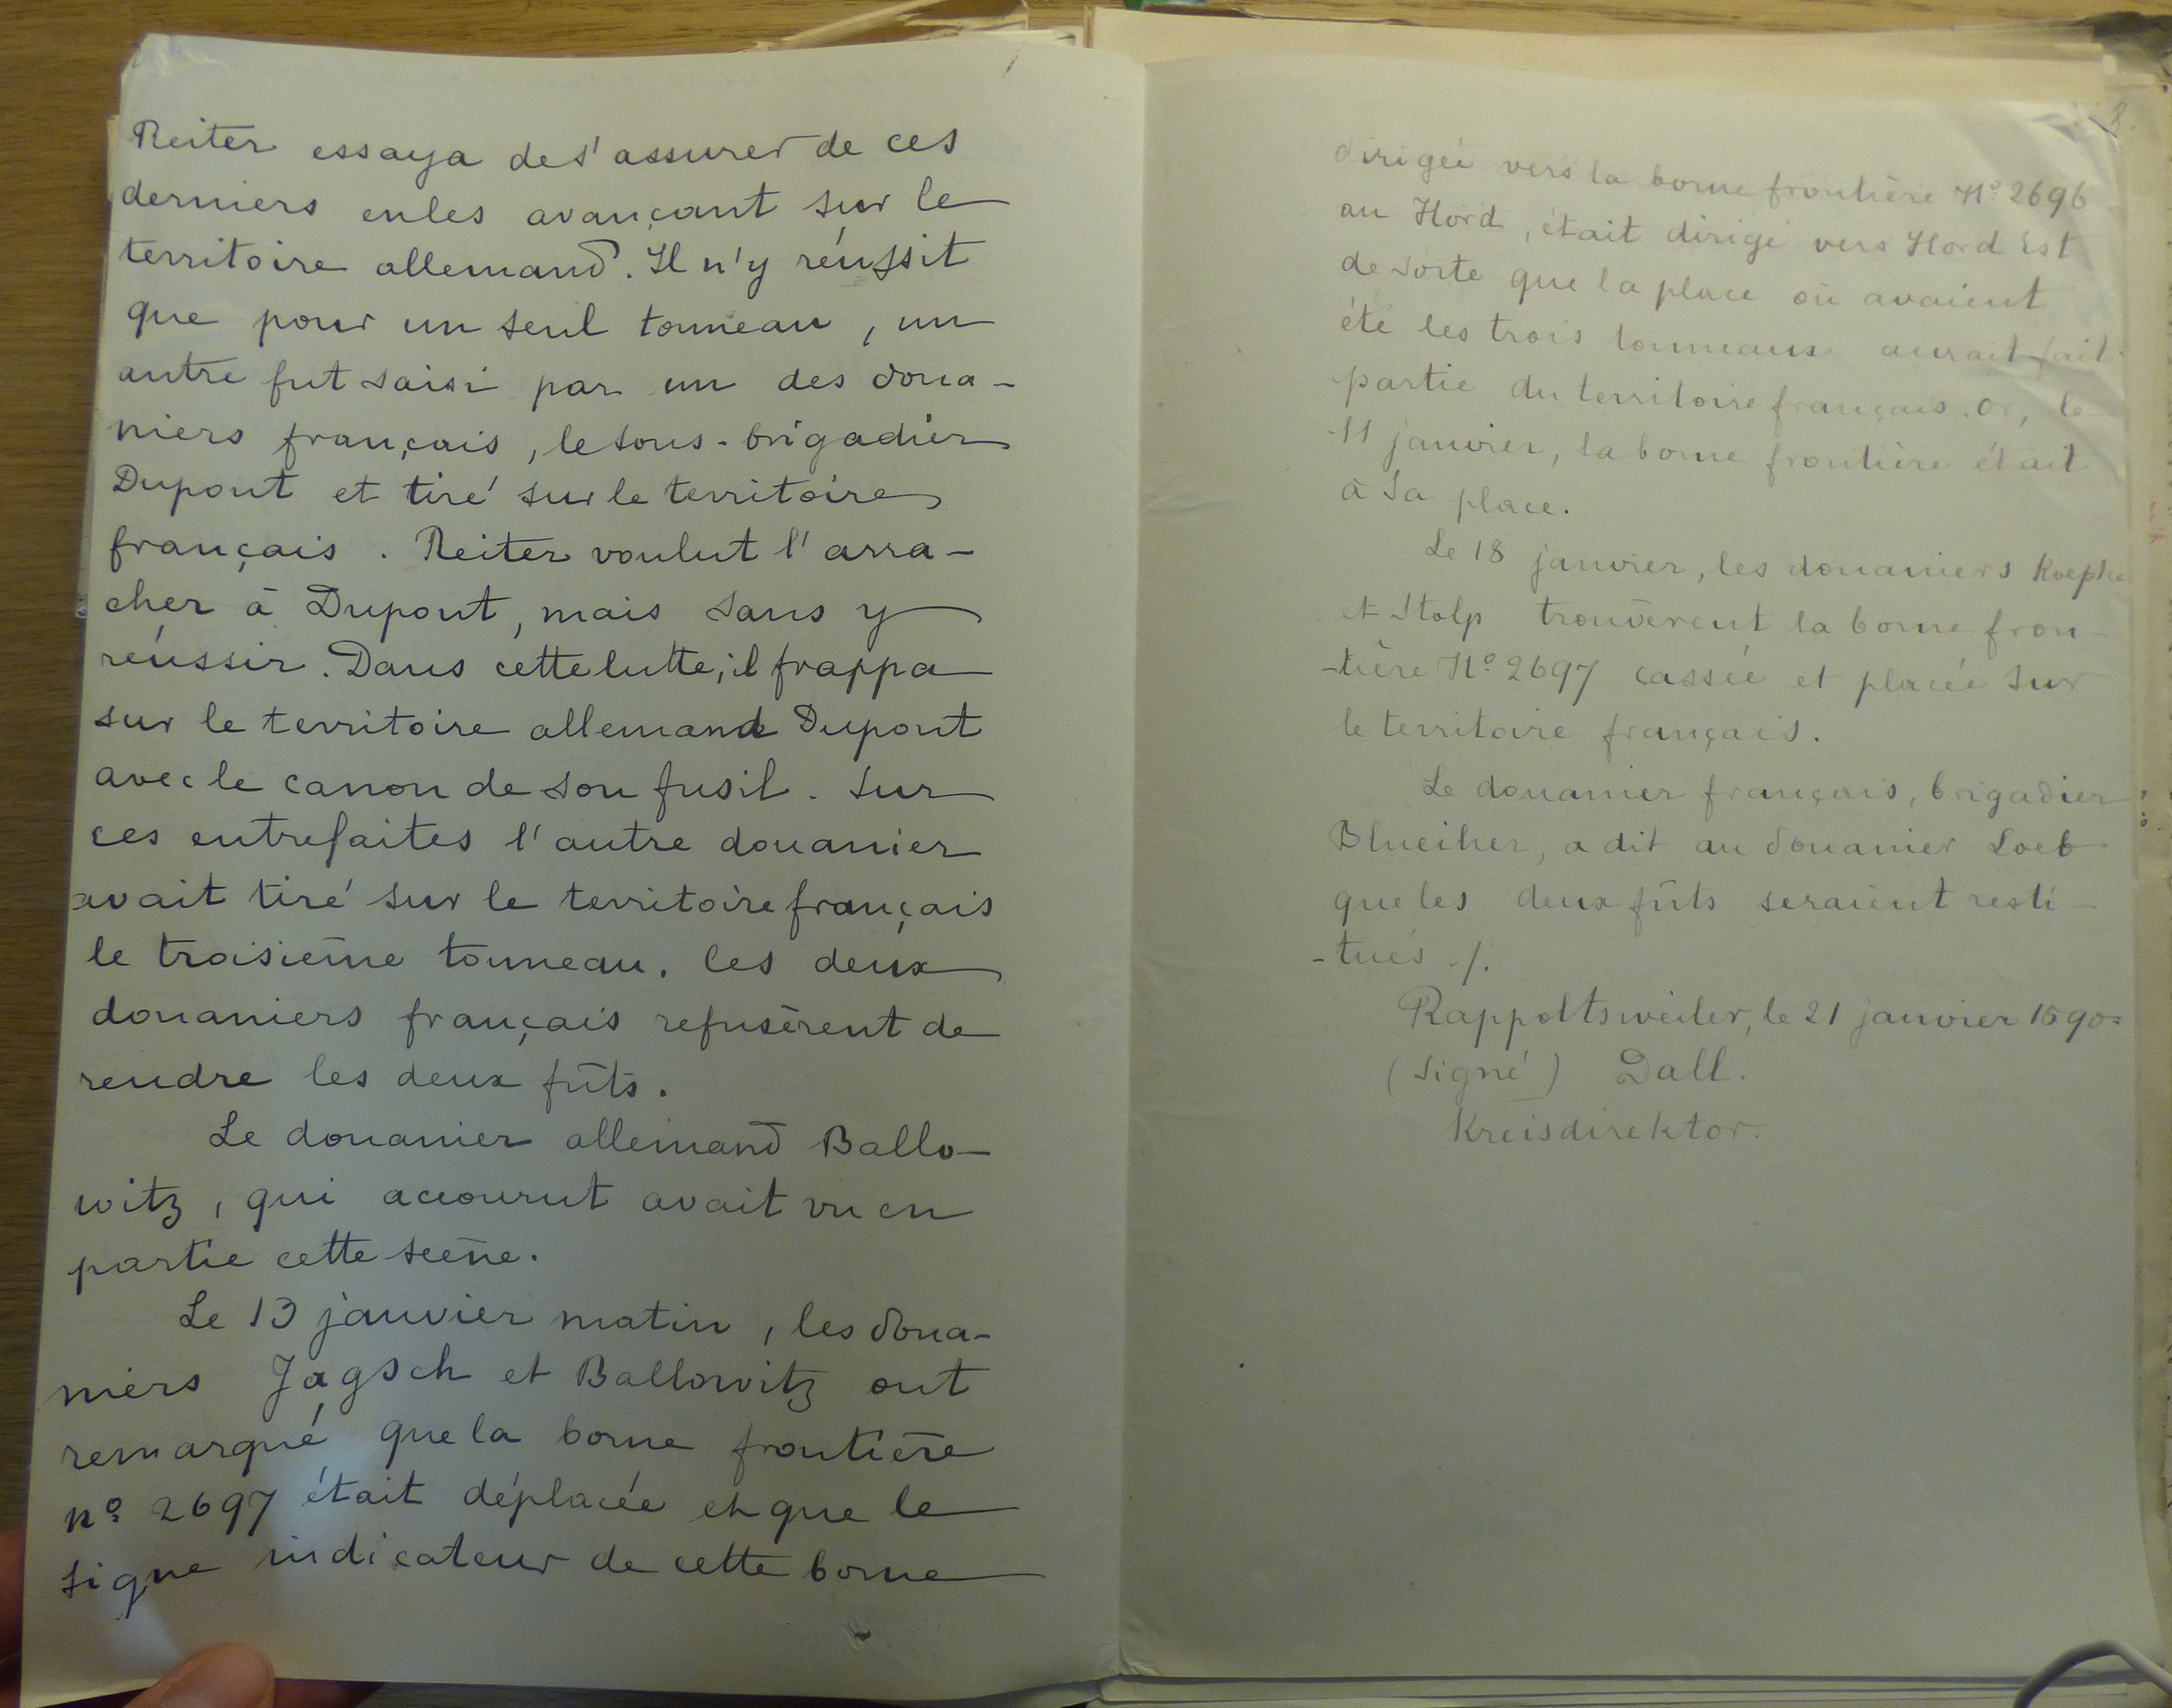 Reiter essaya de s'assurer de ces
derniers en les avançant sur le
territoire allemand. Il n'y réussit
que pour un seul tonneau, un
autre fut saisi par un des doua-
niers français, le sous-brigadier
Dupont et tiré sur le territoire
français. Reiter voulut l'arra-
cher à Dupont, mais sans y
réussir. Dans cette lutte, il frappa
sur le territoire allemand Dupont
avec le canon de son fusil. Sur
ces entrefaites l'autre douanier
avait tiré sur le territoire français
le troisième tonneau. Les deux
douaniers français refusèrent de
rendre les deux fûts.
Le douanier allemand Ballo-
witz, qui accourut avait vu en
partie cette scène.
Le 13 janvier matin, les doua-
niers Jagsch et Ballowitz ont
remarqué que la borne frontière
nº 2697 était déplacée et que le
signe indicateur de cette borne
8.
dirigée vers la borne frontière Nº 2696
au Nord, était dirigé vers Nord Est
de sorte que la place où avaient
été les trois tonneaux aurait fait
partie du territoire français. Or, le
11 janvier, la borne frontière était
à sa place.
Le 18 janvier, les douaniers
et Stolp trouvèrent la borne fron-
-tière Nº 2697 cassée et placée sur
le territoire français.
Le douanier français, brigadier
Blueiher, a dit au douanier Loeb
que les deux fûts seraient resti-
-tués ./.
Rappoltsweiler, le 21 janvier 1890=
(signé) Dall.
Kreisdirektor.